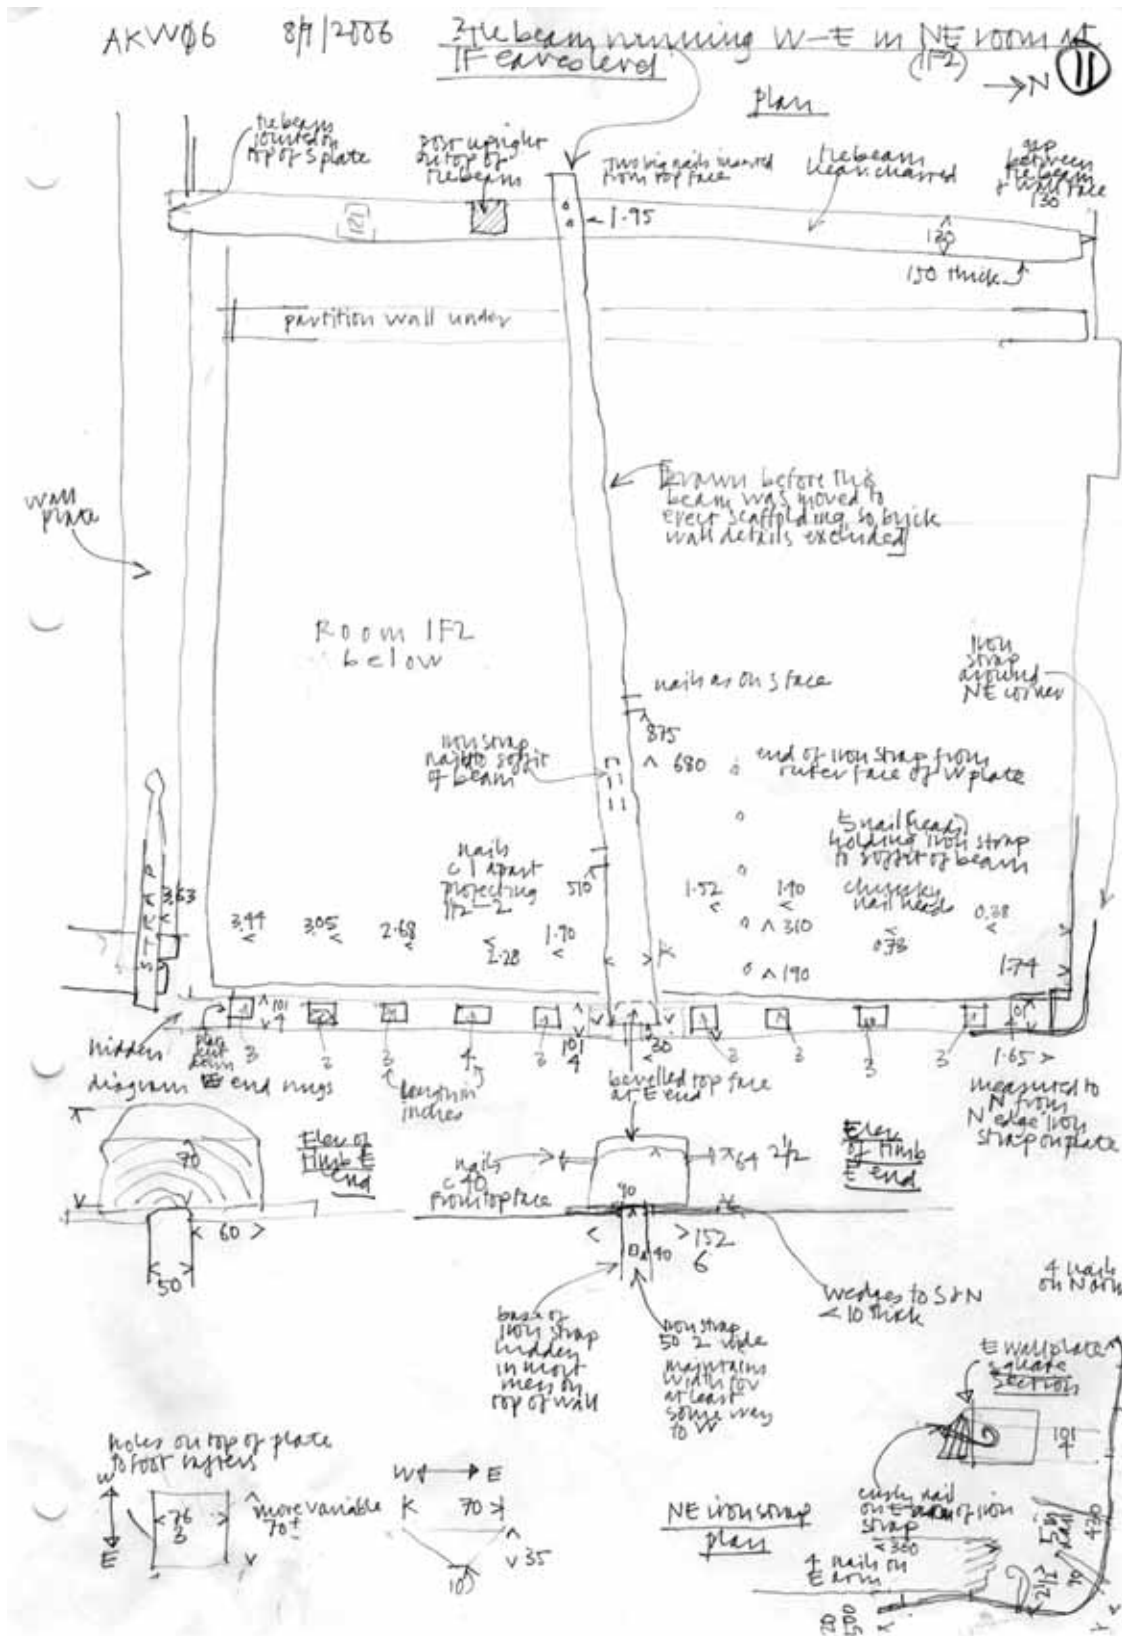 AKW06 8/9/2006 tie beam running W-E in NE room at 11
1F eaves level (1F2) → N
plan
tie beam
jointed on
top of S plate
post upright
on top of
tie beam
two big nails inserted
from top face
tie beam
charred
gap
between
tie beam
& wall face
130
1.95
130
150 thick
partition wall under
wall
plate
[Drawn before this
beam was moved to
erect scaffolding, so brick
wall details excluded]
Room 1F2
below
iron
strap
around
NE corner
nails as on S face
875
iron strap
nail to soffit
of beam
680
end of iron strap from
outer face of W plate
5 nail (heads)
holding iron strap
to soffit of beam
nails
c 1 apart
projecting
1 1/2 - 2
510
1.52
1.10
chunky
nail heads
0.38
STRAP
3.63
3.44
3.05
2.68
2.28
1.90
310
0.73
190
1.74
101
4
hidden
plate
cut
down
3
3
3
4
3
101
4
30
3
3
3
3
1.65
diagram E end rngs
length in
inches
bevelled top face
at E end
measured to
N from
N edge iron
strap on plate
70
Elev of
timb E
end
nails
c 40
from top face
64 2 1/2
Elev
of timb
E end
90
60
50
152
6
40
wedges to S & N
< 10 thick
4 nails
on N arm
base of
iron strap
hidden
in mort
mess on
top of wall
iron strap
50 2 wide
maintains
width for
at least
some way
to W
E wallplate
square
section
101
4
holes on top of plate
to foot rafters
W
E
76
3
more variable
70±
W E
70
35
10
NE iron strap
plan
curly nail
on E arm of iron
strap
300
4 nails on
E arm
5 in
nail
430
2 1/2
70
20
500